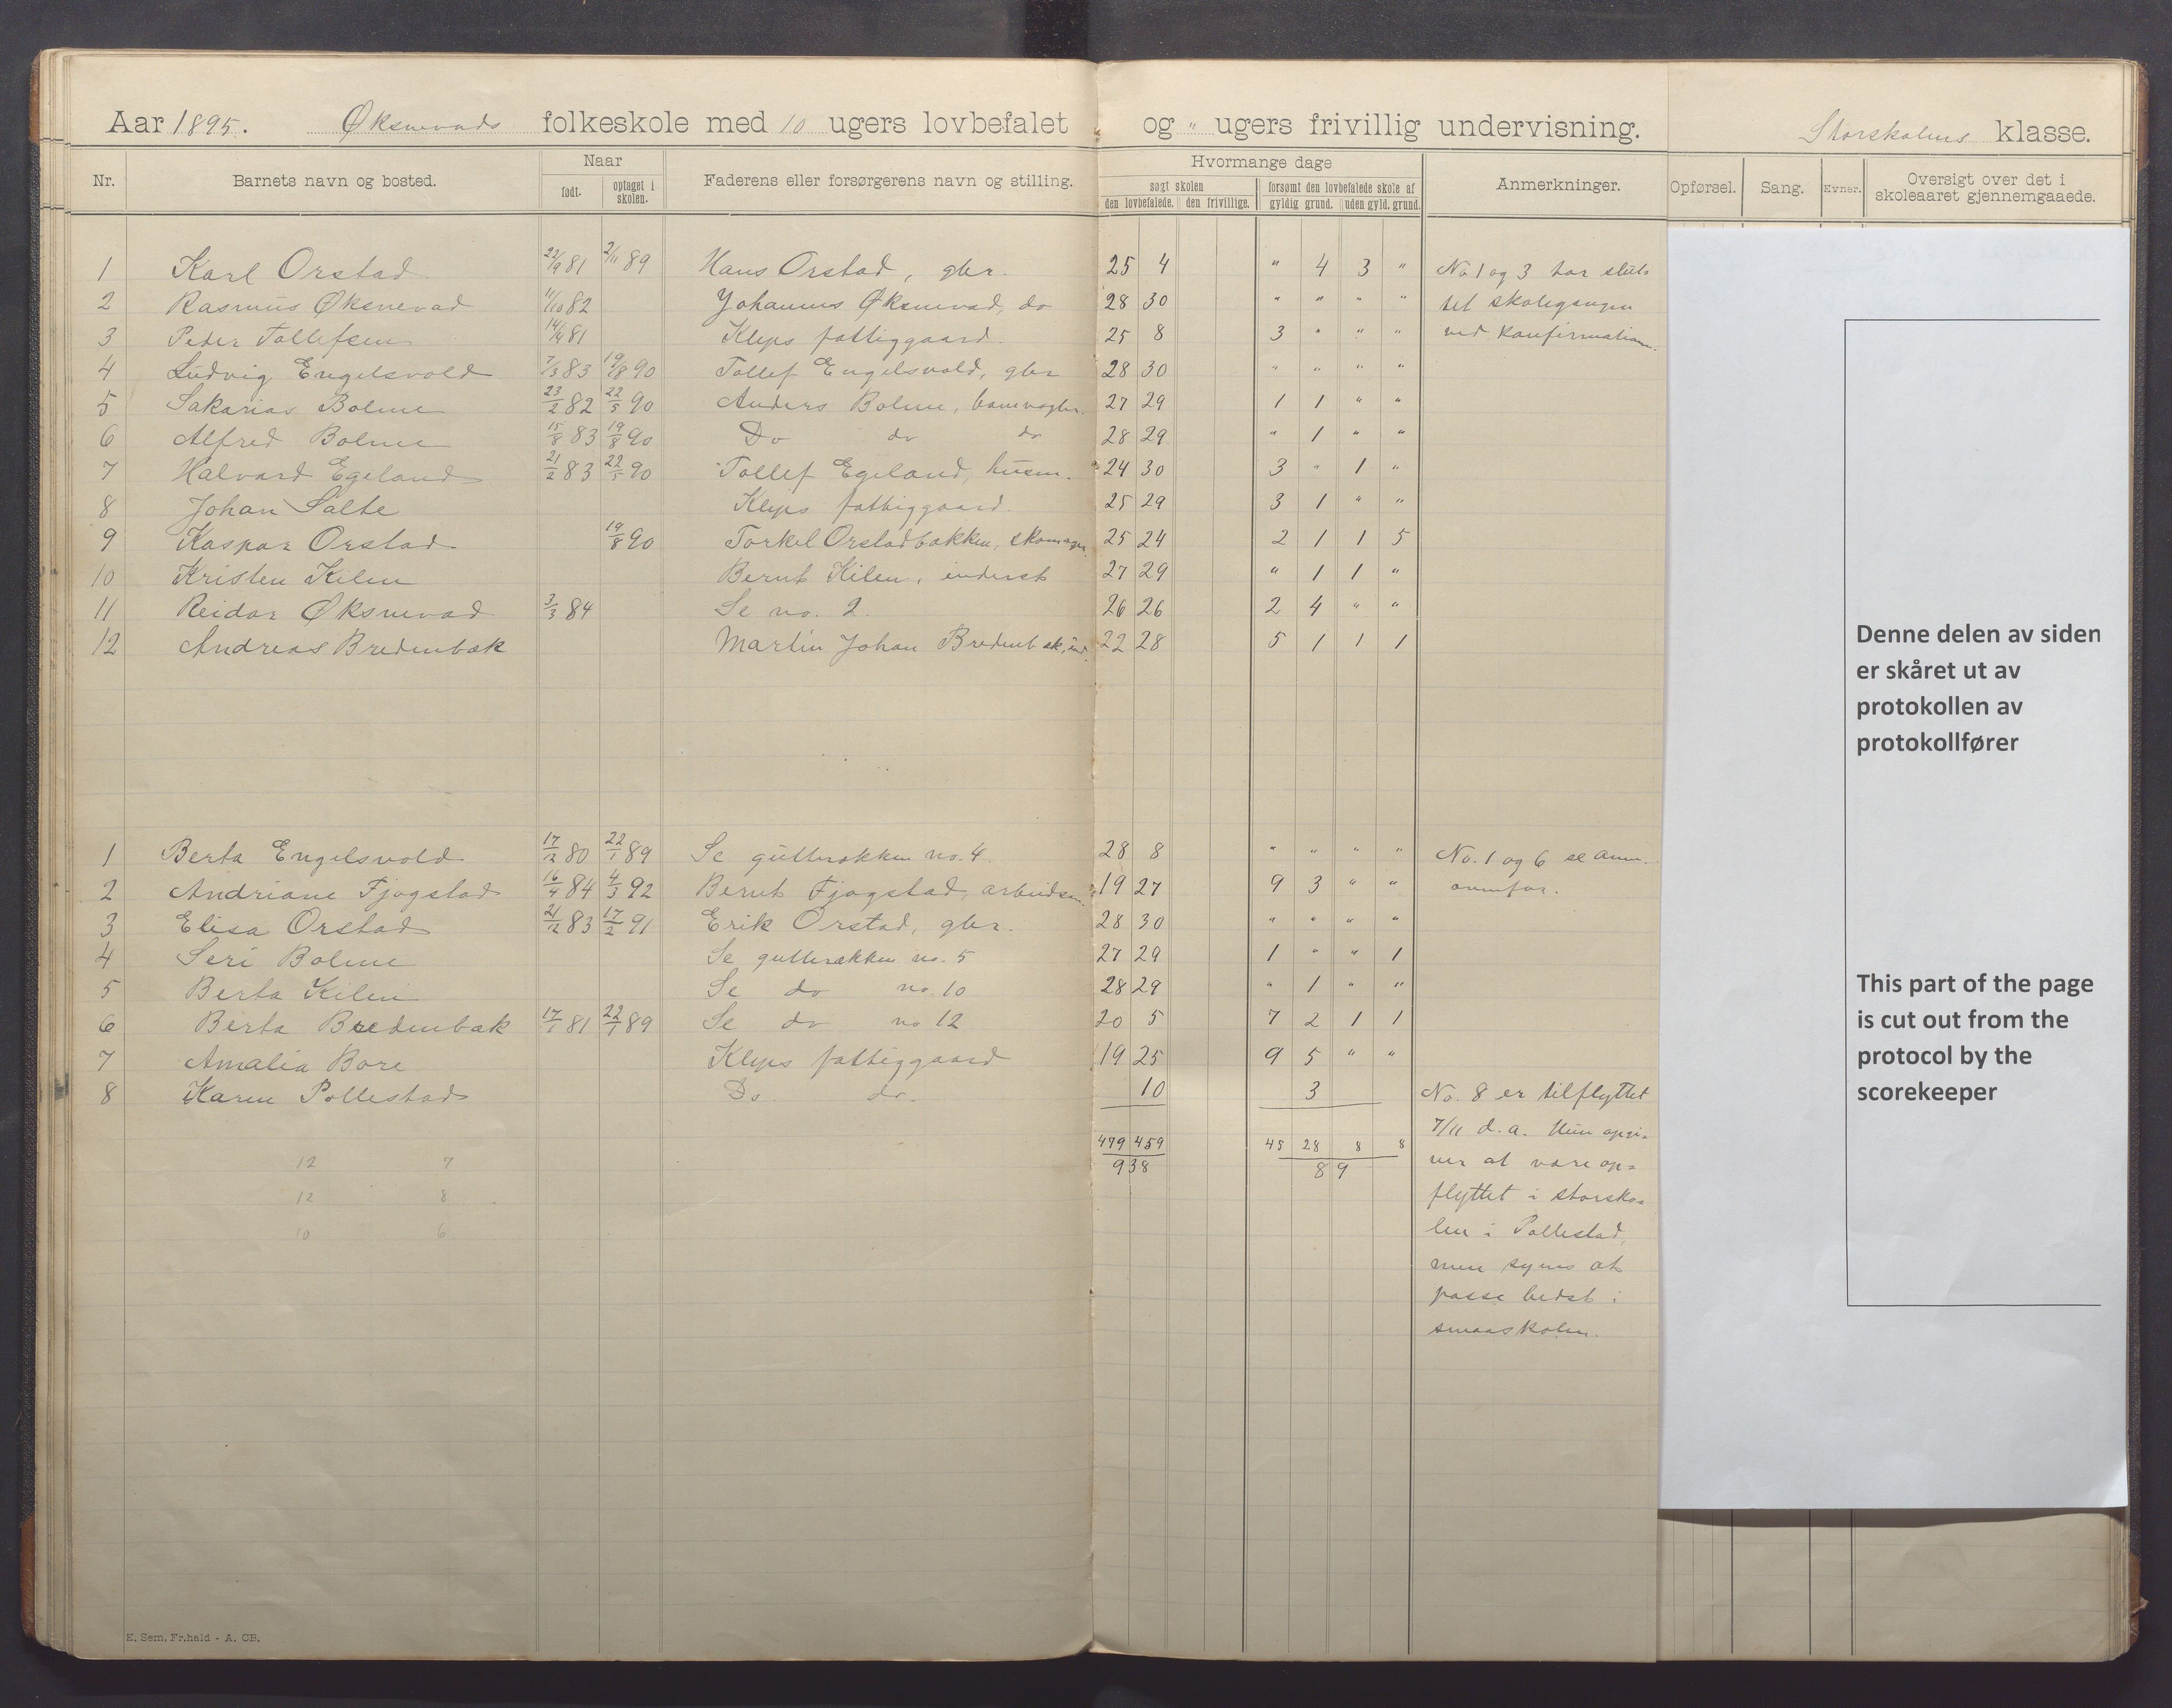 Aar 1895. Øksnevads folkeskole med 10 ugers lovbefalet og " ugers frivillig undervisning. Storskolens klasse.
Nr. Barnets navn og bosted. Naar født. optaget i skolen. Faderens eller forsørgerens navn og stilling. Hvormange dage søgt skolen den lovbefalede. den frivillige. forsømt den lovbefalede skole af gyldig grund. uden gyld. grund. Anmerkninger. Opførsel. Sang. Evner. Oversigt over det i skoleaaret gjennemgaaede.
1 Karl Orstad 22/9 81 2/11 89 Hans Orstad, gbr. 25 4 " 4 3 " No 1 og 3 har slut-
2 Rasmus Øksnevad 11/10 82 Johannes Øksnevad, do 28 30 " " " " tet skolegangen
3 Peder Tollefsen 14/4 81 Kleps fattiggaard. 25 8 3 " " " ved konfirmation.
4 Ludvig Engelsvold 7/3 83 19/8 90 Tollef Engelsvold, gbr 28 30 " " " "
5 Sakarias Bolme 23/2 82 22/5 90 Anders Bolme, banevogter. 27 29 1 1 " "
6 Alfred Bolme 15/8 83 19/8 90 Do do do 28 29 " 1 " "
7 Halvard Egeland 21/2 83 22/5 90 Tollef Egeland, husm. 24 30 3 " 1 "
8 Johan Salte Kleps fattiggaard. 25 29 3 1 " "
9 Kaspar Orstad 19/8 90 Torkel Orstadbakken, skomager. 25 24 2 1 1 5
10 Kristen Kilen Bernt Kilen, inderst 27 29 " 1 1 "
11 Reidar Øksnevad 3/3 84 Se no. 2. 26 26 2 4 " "
12 Andreas Bredenbæk Martin Johan Bredenbæk, ind. 22 28 5 1 1 1
1 Berta Engelsvold 17/12 80 22/1 89 Se gutterækken no. 4 28 8 " " " " No. 1 og 6 se anm.
2 Andriane Fjogstad 16/4 84 4/5 92 Bernt Fjogstad, arbeidsm. 19 27 9 3 " " ovenfor.
3 Elisa Orstad 21/12 83 17/2 91 Erik Orstad, gbr. 28 30 " " " "
4 Seri Bolme Se gutterækken no. 5 27 29 1 " " 1
5 Berta Kilen Se do no. 10 28 29 " 1 " "
6 Berta Bredenbæk 17/1 81 22/1 89 Se do no 12 20 5 7 2 1 1
7 Amalia Bore Kleps fattiggaard 19 25 9 5 " "
8 Karen Pollestad Do do. 10 3 No. 8 er tilflyttet
7/11 d. a. Hun opgi-
479 459 45 28 8 8
12 7 938 89 ver at være op-
12 8 flyttet i storsko-
10 6 len i Pollestad,
men synes at
passe bedst i
smaaskolen.
Denne delen av siden
er skåret ut av
protokollen av
protokollfører
This part of the page
is cut out from the
protocol by the
scorekeeper
E. Sem, Fr.hald - A. CB.